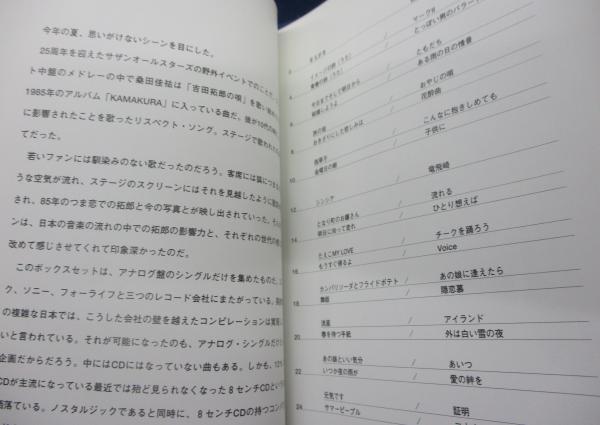 今年の夏、思いがけないシーンを目にした。
25周年を迎えたサザンオールスターズの野外イベントでのことだ。
ト中盤のメドレーの中で桑田佳祐は「吉田拓郎の唄」を歌い
1985年のアルバム「KAMAKURA」に入っている曲だ。彼が10代の
に影響されたことを歌ったリスペクト・ソング。ステージで歌われ
てだった。
若いファンには馴染みのない歌だったのだろう。客席には
うな空気が流れ、ステージのスクリーンにはそれを見越したように
され、85年のつま恋での拓郎と今の写真とが映し出されていった。
ンは、日本の音楽の流れの中での拓郎の影響力と、それぞれの世代の
改めて感じさせてくれて印象深かったのだ。
このボックスセットは、アナログ盤のシングルだけを集めたものだ。
ク、ソニー、フォーライフと三つのレコード会社にまたがっている。
の複雑な日本では、こうした会社の壁を越えたコンピレーションは
いと言われている。それが可能になったのも、アナログ・シングル
企画だからだろう。中にはCDになっていない曲もある。しかも、
CDが主流になっている最近では殆ど見られなくなった8センチCDと
洒落ている。ノスタルジックであると同時に、8センチCDの持つコンパ
マークII
/ とっぽい男のバラード
イメージの詩
/ ともだち
青春の詩 / ある雨の日の情景
今日までそして明日から / おやじの唄
結婚しようよ / 花酔曲
旅の宿 / こんなに抱きしめても
おきざりにした悲しみは / 子供に
10
金曜日の朝
12
シンシア / 竜飛崎
となり町のお嬢さん / 流れる
14
明日に向って走れ / ひとり想えば
たえこMY LOVE / チークを踊ろう
16
もうすぐ帰るよ / Voice
カンパリソーダとフライドポテト / あの娘に逢えたら
18
舞姫 / 隠恋慕
流星 / アイランド
20
春を待つ手紙 / 外は白い雪の夜
あの娘といい気分 / あいつ
22
いつか夜の雨が / 愛の絆を
元気です / 証明
24
サマーピープル